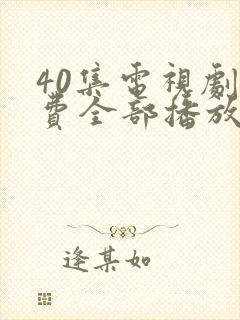 40集電視劇
費全部播放
逢某如